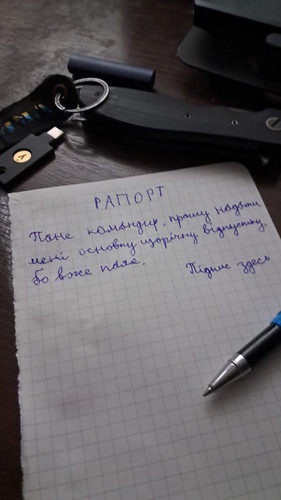 РАПОРТ
Пане командир, прошу надати
мені основну щорічну відпустку,
бо вже пала.
Підпис здесь